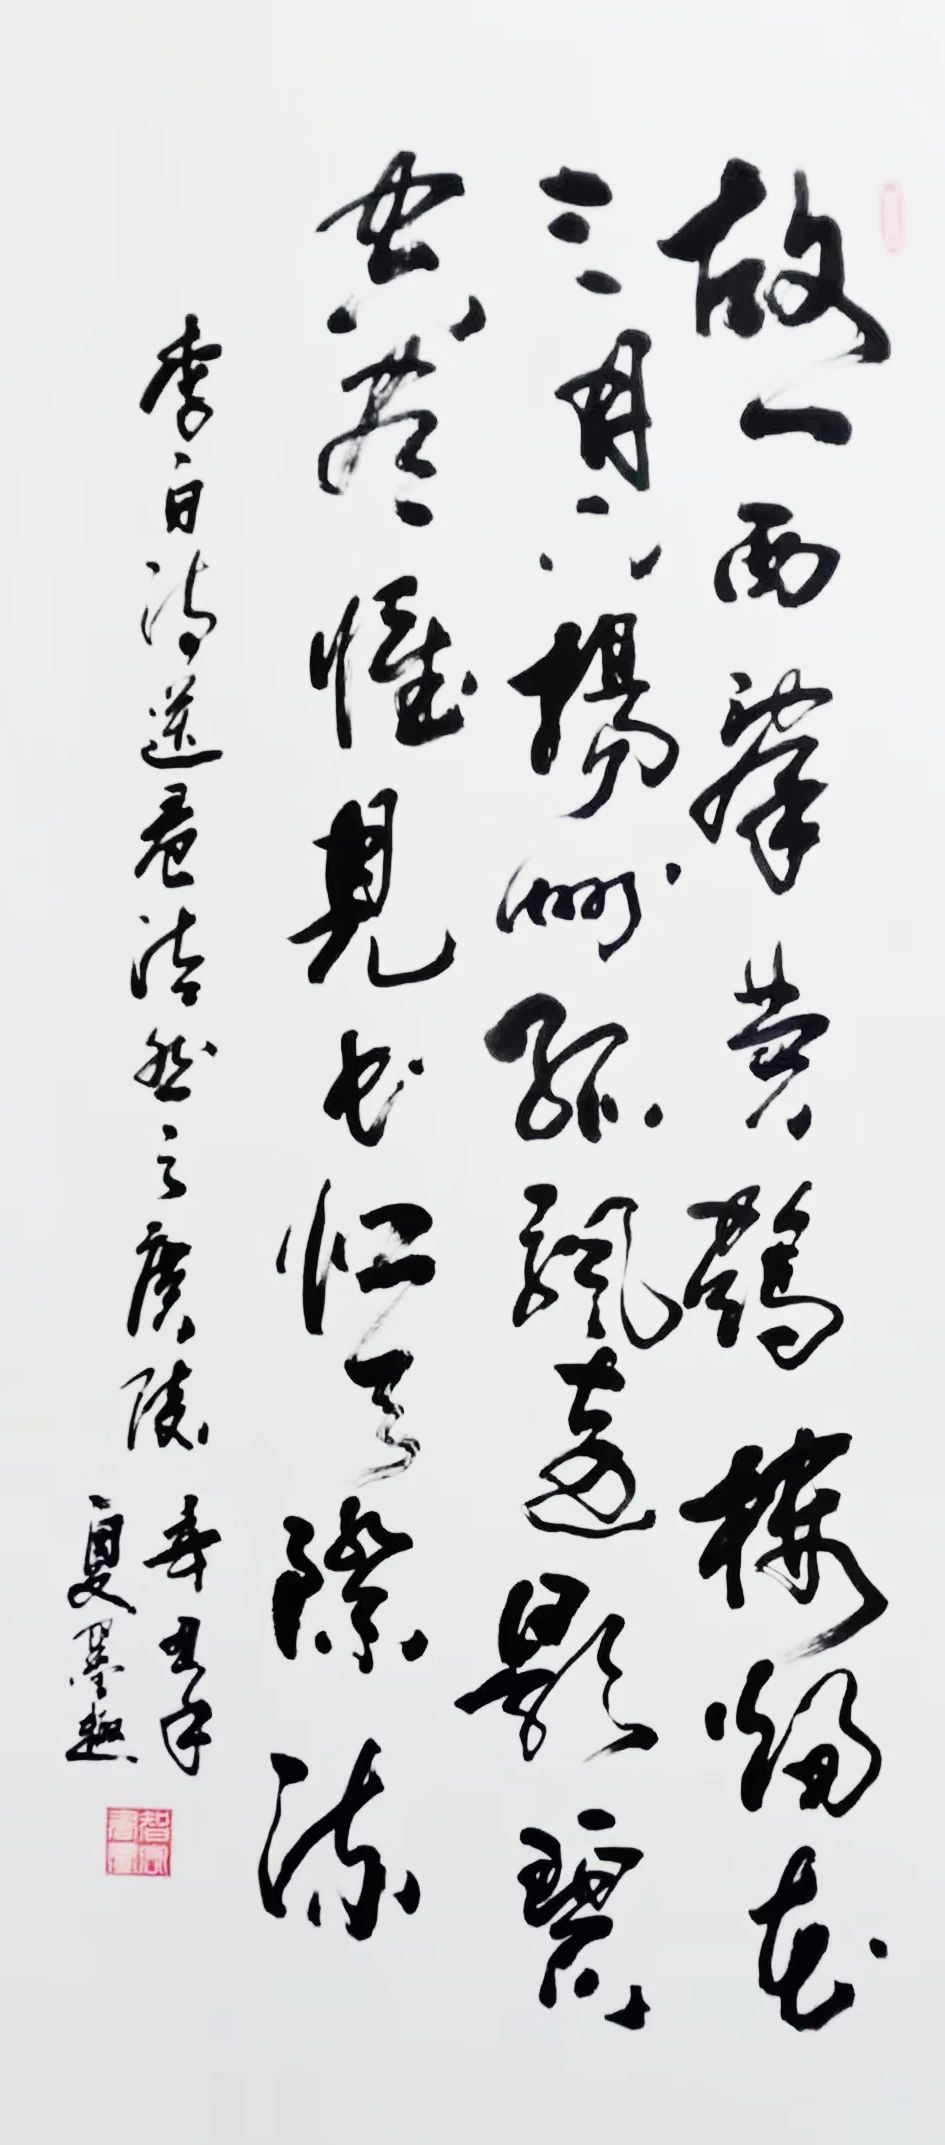 故人西辭黄鶴樓煙花
三月下揚州孤颿遠影碧
空盡惟見長江天際流
李白詩送孟浩然之廣陵 辛丑年
夏墨趣